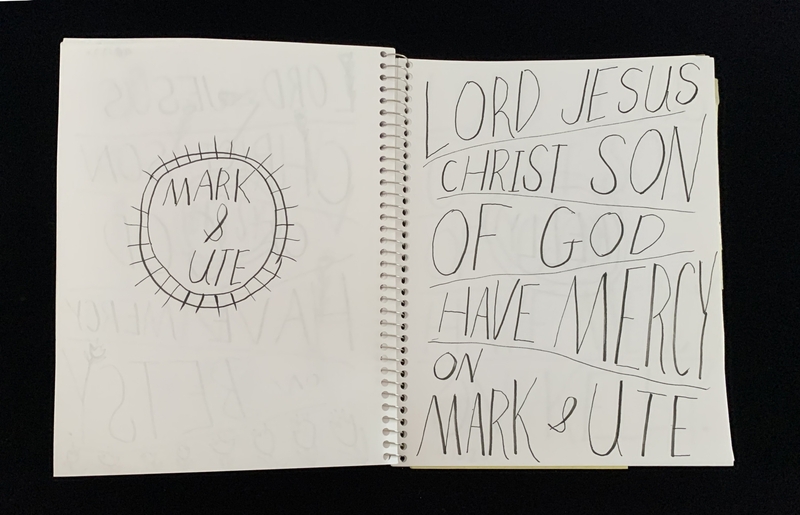 MARK
&
UTE
LORD JESUS
CHRIST SON
OF GOD
HAVE MERCY
ON
MARK & UTE